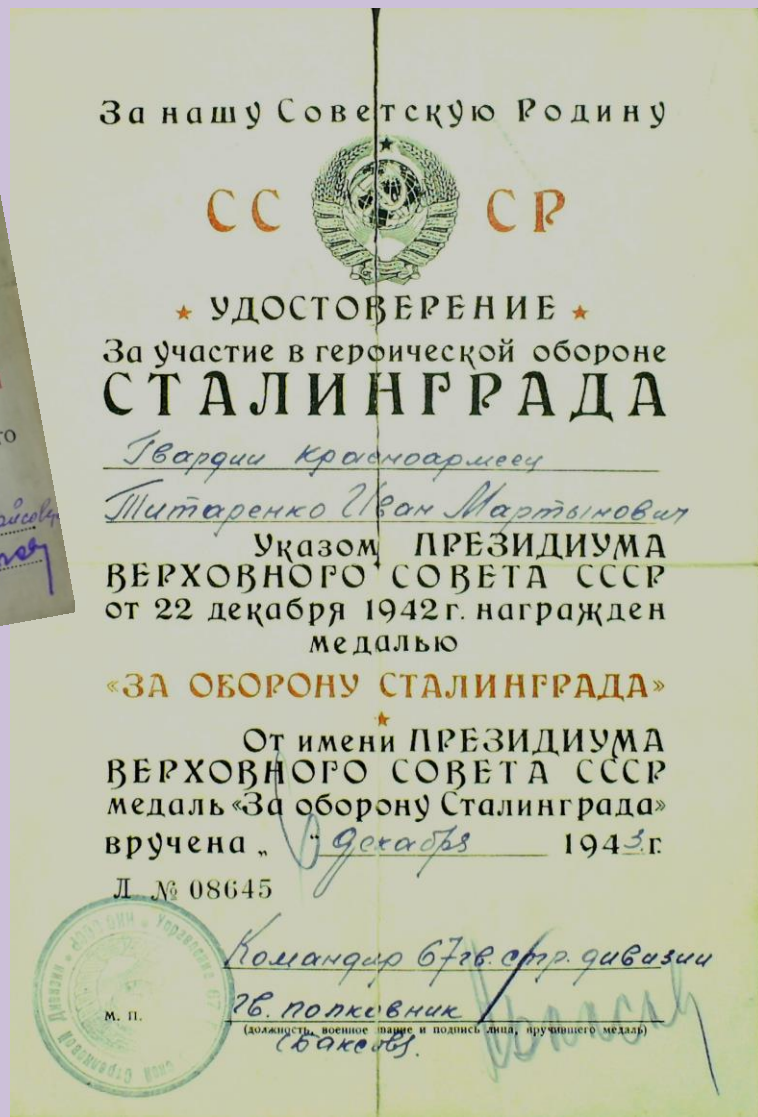 За нашу Советскую Родину
СССР
УДОСТОВЕРЕНИЕ
За участие в героической обороне
СТАЛИНГРАДА
Гвардии красноармеец
Титаренко Иван Мартынович
Указом ПРЕЗИДИУМА
ВЕРХОВНОГО СОВЕТА СССР
от 22 декабря 1942 г. награжден
медалью
«ЗА ОБОРОНУ СТАЛИНГРАДА»
От имени ПРЕЗИДИУМА
ВЕРХОВНОГО СОВЕТА СССР
медаль «За оборону Сталинграда»
вручена „ “ декабря 1943 г.
Л № 08645
Командир 67 гв. стр. дивизии
гв. полковник
М. П.
(должность, военное звание и подпись лица, вручившего медаль)
(Баксов).